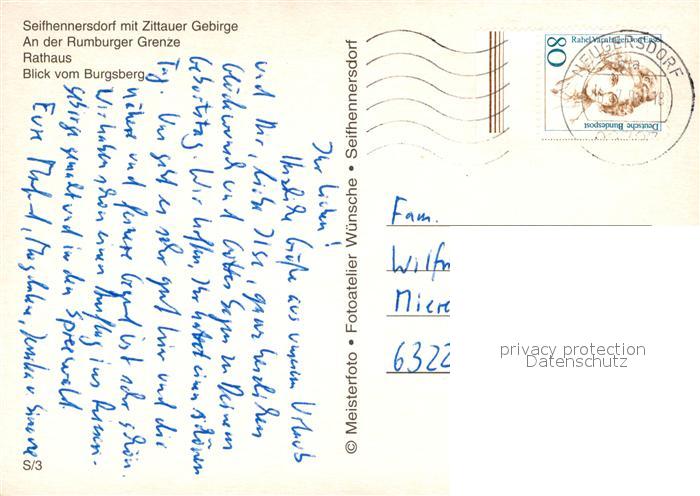 Seifhennersdorf mit Zittauer Gebirge
An der Rumburger Grenze
Rathaus
Blick vom Burgsberg
Ihr Lieben!
Herzliche Grüße aus unserem Urlaub
und Dir, liebe Ilse, ganz herzlichen
Glückwunsch und Gottes Segen zu Deinem
Geburtstag. Wir hoffen, Ihr hattet einen schönen
Tag. Uns geht es sehr gut hier und die
nähere und fernere Gegend ist sehr schön.
Wir haben schon einen Ausflug ins Riesen-
gebirge gemacht und in den Spreewald.
Eure Magdalena,
© Meisterfoto • Fotoatelier Wünsche • Seifhennersdorf
S/3
Rahel Varnhagen von Ense
80
Deutsche Bundespost
NEUGERSDORF
Fam.
Wilfr
Miere
6322
privacy protection
Datenschutz